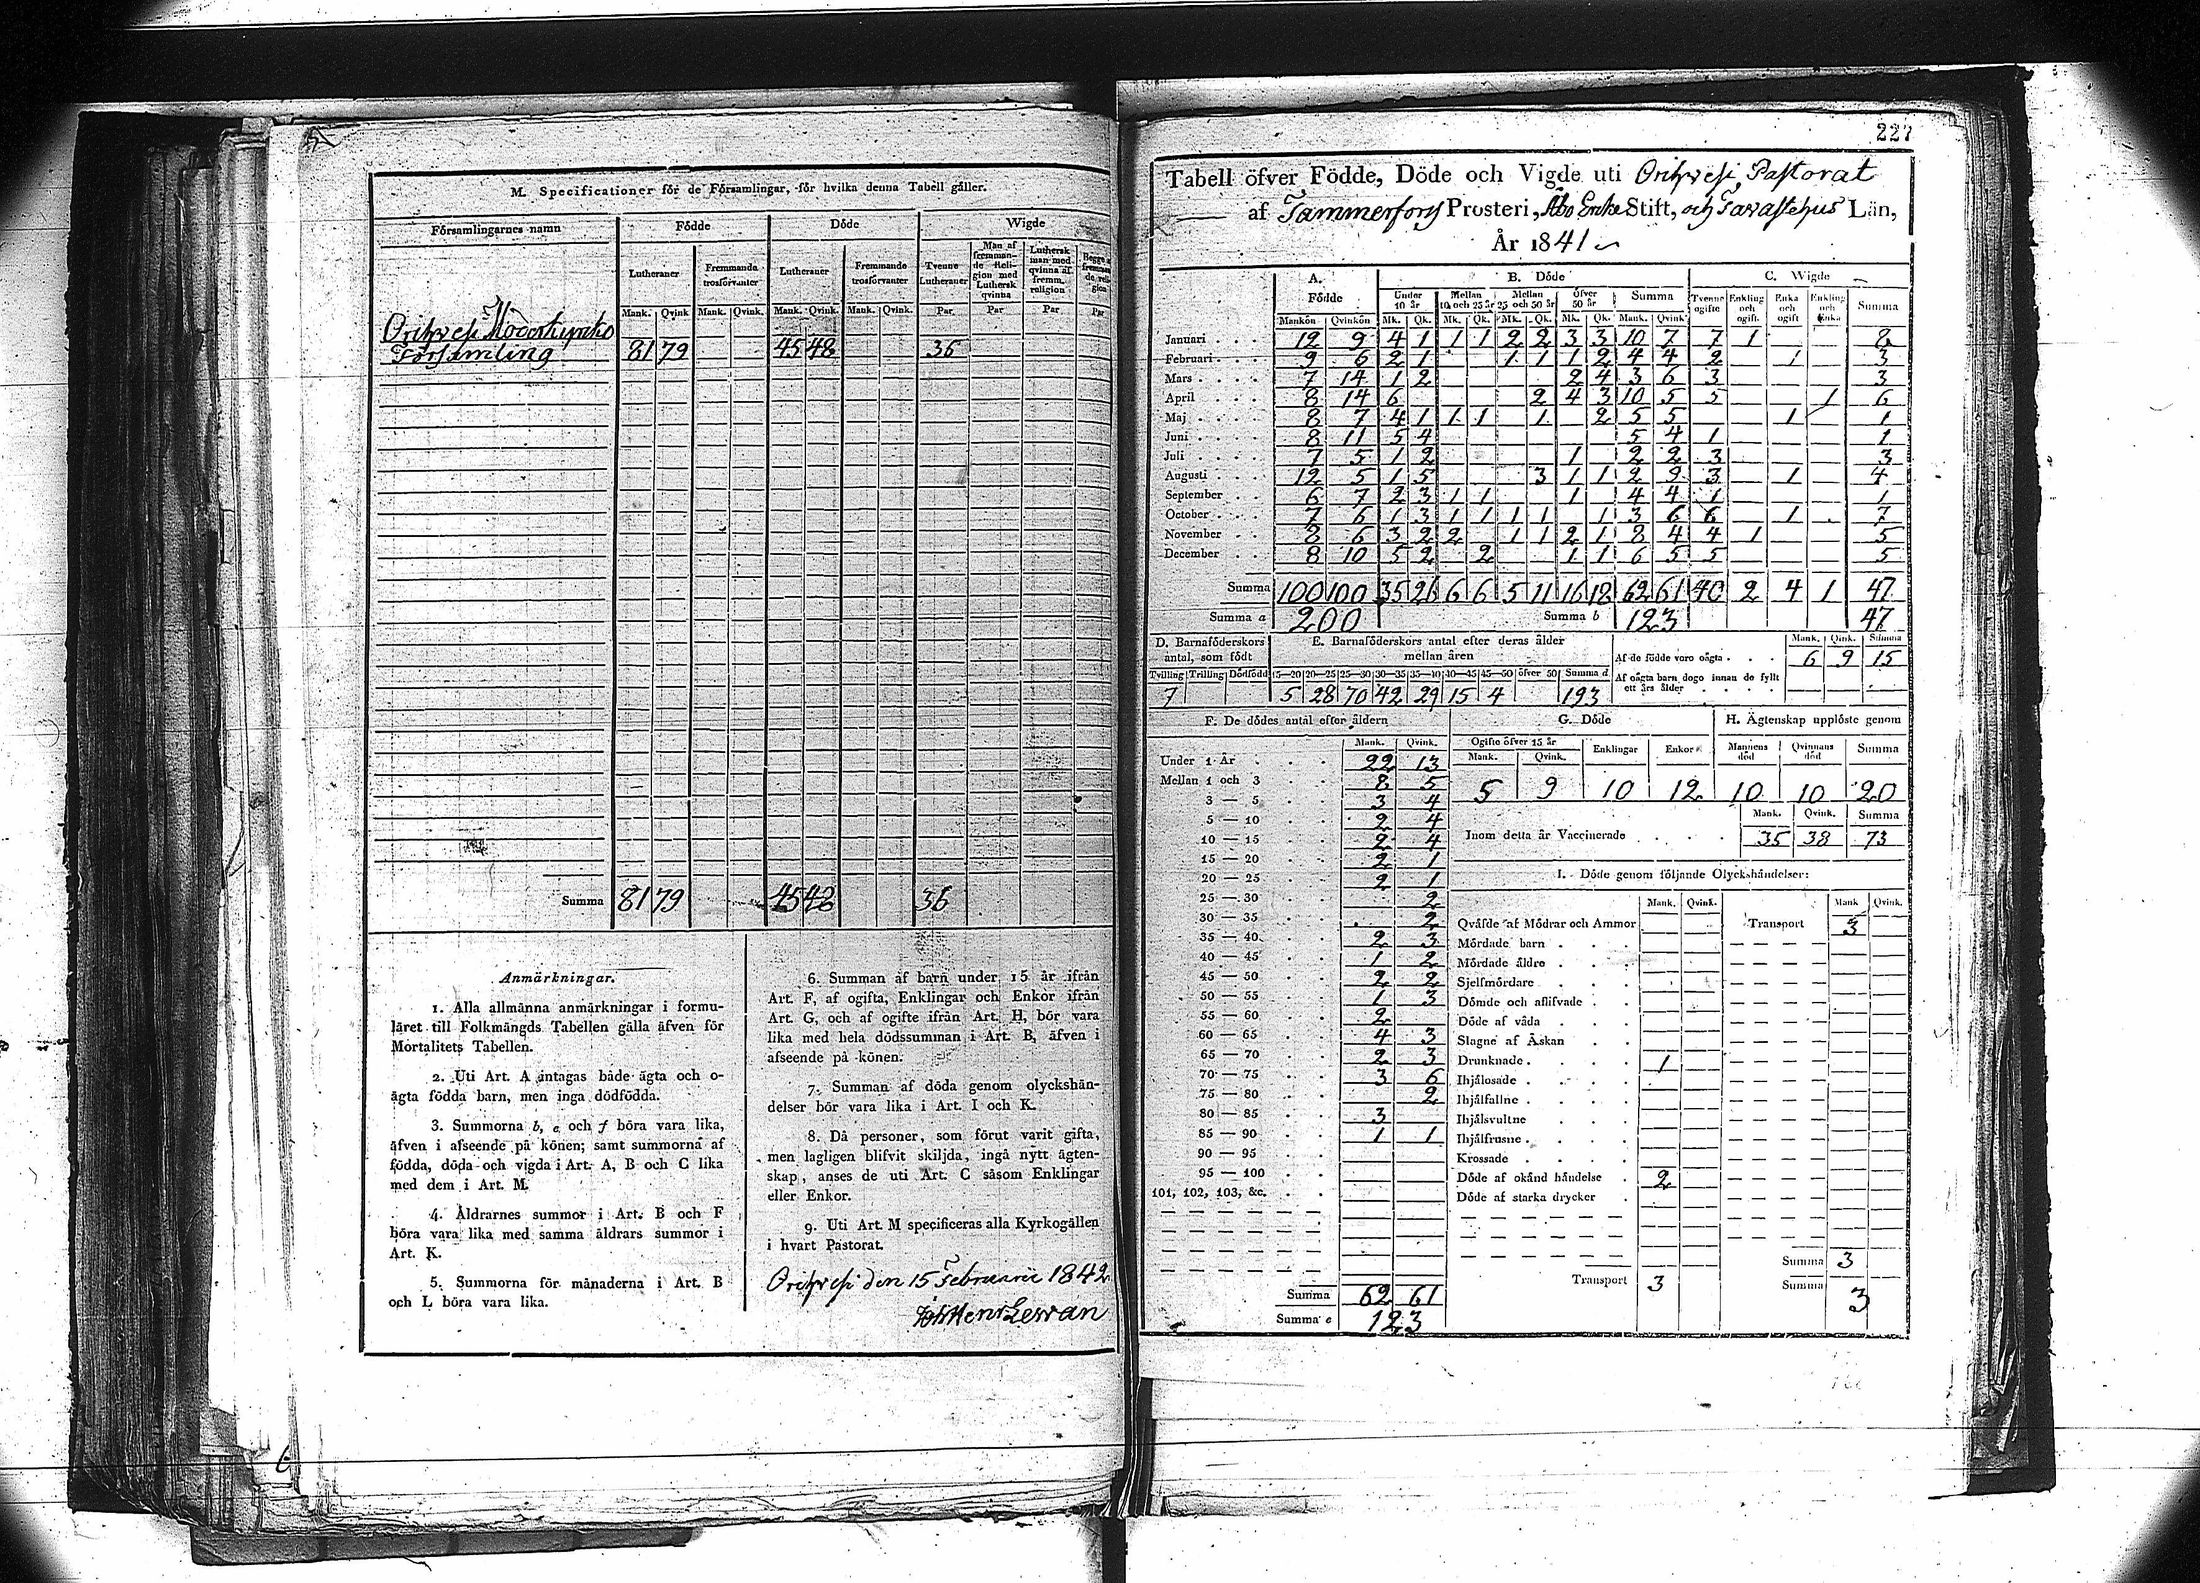 M. Specificationer för de Församlingar, för hvilka denna Tabell gäller.
Församlingarnes namn Födde Döde Wigde
Lutheraner Fremmande trosförvanter Lutheraner Fremmande trosförvanter Tvenne Lutheraner Man af fremmande Religion med Luthersk qvinna Luthersk man med qvinna af fremm. religion
Mank. Qvink. Mank. Qvink. Mank. Qvink. Mank. Qvink. Par. Par Par Par
Orihvesi Moderkyrko
Församling 81 79 45 48 36
Summa 81 79 45 48 36
Anmärkningar.
1. Alla allmänna anmärkningar i formu-
läret till Folkmängds Tabellen gälla äfven för
Mortalitets Tabellen.
2. Uti Art. A antagas både ägta och o-
ägta födda barn, men inga dödfödda.
3. Summorna b, e och f böra vara lika,
äfven i afseende på könen; samt summorna af
födda, döda och vigda i Art. A, B och C lika
med dem i Art. M.
4. Åldrarnes summor i Art. B och F
böra vara lika med samma åldrars summor i
Art. K.
5. Summorna för månaderna i Art. B
och L böra vara lika.
6. Summan af barn under 15 år ifrån
Art. F, af ogifta, Enklingar och Enkor ifrån
Art. G, och af ogifte ifrån Art. H, bör vara
lika med hela dödssumman i Art. B, äfven i
afseende på könen.
7. Summan af döda genom olyckshän-
delser bör vara lika i Art. I och K.
8. Då personer, som förut varit gifta,
men lagligen blifvit skiljda, ingå nytt ägten-
skap, anses de uti Art. C såsom Enklingar
eller Enkor.
9. Uti Art. M specificeras alla Kyrkogällen
i hvart Pastorat.
Orihvesi den 15 Februarii 1842
227
Tabell öfver Födde, Döde och Vigde uti Orihvesi Pastorat
af Tammerfors Prosteri, Åbo Erke Stift, och Tavastehus Län,
År 1841
A. Födde B. Döde C. Wigde
Under 10 år Mellan 10 och 25 år Mellan 25 och 50 år Öfver 50 år Summa Tvenne ogifte Enkling och ogift Enka och ogift Enkling och Enka Summa
Mankön Qvinkön Mk. Qk. Mk. Qk. Mk. Qk. Mk. Qk. Mank. Qvink.
Januari 12 9 4 1 1 1 2 2 3 3 10 7 7 1 8
Februari 9 6 2 1 1 1 1 2 4 4 2 1 3
Mars 7 14 1 2 2 4 3 6 3 3
April 8 14 6 2 4 3 10 5 5 1 6
Maj 8 7 4 1 1 1 1 2 5 5 1 1
Juni 8 11 5 4 5 4 1 1
Juli 7 5 1 2 1 2 2 3 3
Augusti 12 5 1 5 3 1 1 2 9 3 1 4
September 6 7 2 3 1 1 1 4 4 1 1
October 7 6 1 3 1 1 1 1 1 3 6 6 1 7
November 8 6 3 2 2 1 1 2 1 8 4 4 1 5
December 8 10 5 2 2 1 1 6 5 5 5
Summa 100 100 35 26 6 6 5 11 16 18 62 61 40 2 4 1 47
Summa a 200 Summa b 123 47
D. Barnaföderskors antal, som födt
Tvilling Trilling Dödfödd
7
E. Barnaföderskors antal efter deras ålder
mellan åren
15—20 20—25 25—30 30—35 35—40 40—45 45—50 öfver 50 Summa d
5 28 70 42 29 15 4 193
Mank. Qink. Summa
Af de födde voro oägta 6 9 15
Af oägta barn dogo innan de fyllt
ett års ålder
F. De dödes antal efter åldern
Mank. Qvink.
Under 1 År 22 13
Mellan 1 och 3 8 5
3 — 5 3 4
5 — 10 2 4
10 — 15 2 4
15 — 20 2 1
20 — 25 2 1
25 — 30 2
30 — 35 2
35 — 40 2 3
40 — 45 1 2
45 — 50 2 2
50 — 55 1 3
55 — 60 2
60 — 65 4 3
65 — 70 2 3
70 — 75 3 6
75 — 80 2
80 — 85 3
85 — 90 1 1
90 — 95
95 — 100
101, 102, 103, &c.
Summa 62 61
Summa e 123
G. Döde
Ogifte öfver 15 år Enklingar Enkor
Mank. Qvink.
5 9 10 12
H. Ägtenskap upplöste genom
Mannens död Qvinnans död Summa
10 10 20
Mank. Qvink. Summa
Inom detta år Vaccinerade 35 38 73
I. Döde genom följande Olyckshändelser:
Mank. Qvink. Mank Qvink.
Qväfde af Mödrar och Ammor Transport 3
Mördade barn
Mördade äldre
Sjelfmördare
Dömde och aflifvade
Döde af våda
Slagne af Åskan
Drunknade 1
Ihjälosade
Ihjälfallne
Ihjälsvultne
Ihjälfrusne
Krossade
Döde af okänd händelse 2
Döde af starka drycker
Summa 3
Transport 3 Summa 3